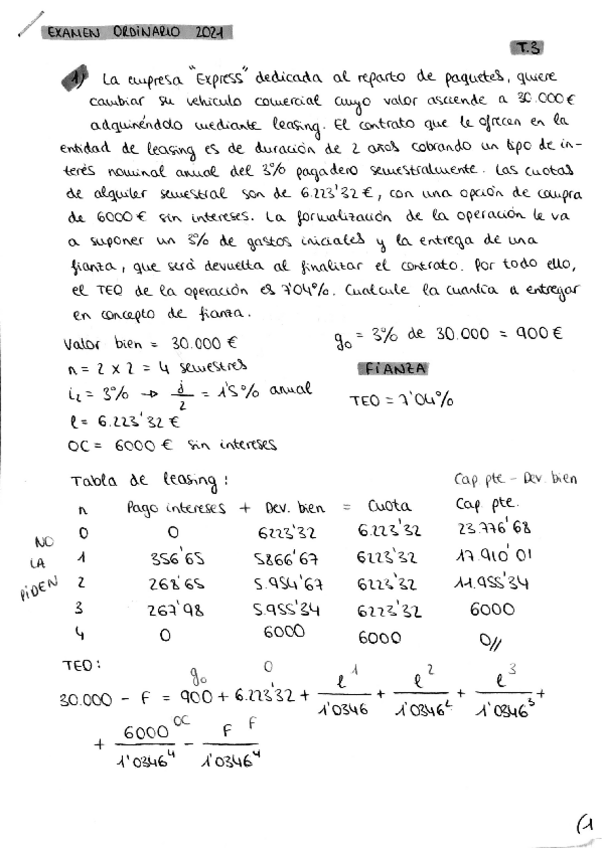 EXAMEN ORDINARIO 2021
T.3
1) La empresa "Express" dedicada al reparto de paquetes, quiere
cambiar su vehiculo comercial cuyo valor asciende a 30.000€
adquiriéndolo mediante leasing. El contrato que le ofrecen en la
entidad de leasing es de duración de 2 años cobrando un tipo de in-
terés nominal anual del 3% pagadero semestralmente. Las cuotas
de alquiler semestral son de 6.223'32€, con una opción de compra
de 6000€ sin intereses. La formalización de la operación le va
a suponer un 3% de gastos iniciales y la entrega de una
fianza, que será devuelta al finalizar el contrato. Por todo ello,
el TEO de la operación es 7'04%. Calcule la cuantía a entregar
en concepto de fianza.
Valor bien = 30.000 €
g₀ = 3% de 30.000 = 900€
n = 2 x 2 = 4 semestres
FIANZA
i₂ = 3% → j/2 = 1'5% anual
TEO = 7'04%
l = 6.223'32 €
OC = 6000 € sin intereses
Tabla de leasing:
Cap pte - Dev. bien
n Pago intereses + Dev. bien = Cuota Cap. pte.
0 0 6223'32 6.223'32 23.776'68
1 356'65 5866'67 6223'32 17.910'01
2 268'65 5.954'67 6223'32 11.955'34
3 267'98 5.955'34 6223'32 6000
4 0 6000 6000 0//
NO
LA
PIDEN
TEO:
30.000 - F = 900 (g₀) + 6.223'32 (0) + l¹/1'0346 + l²/1'0346² + l³/1'0346³ +
+ 6000 (OC)/1'0346⁴ - F (F)/1'0346⁴
(1